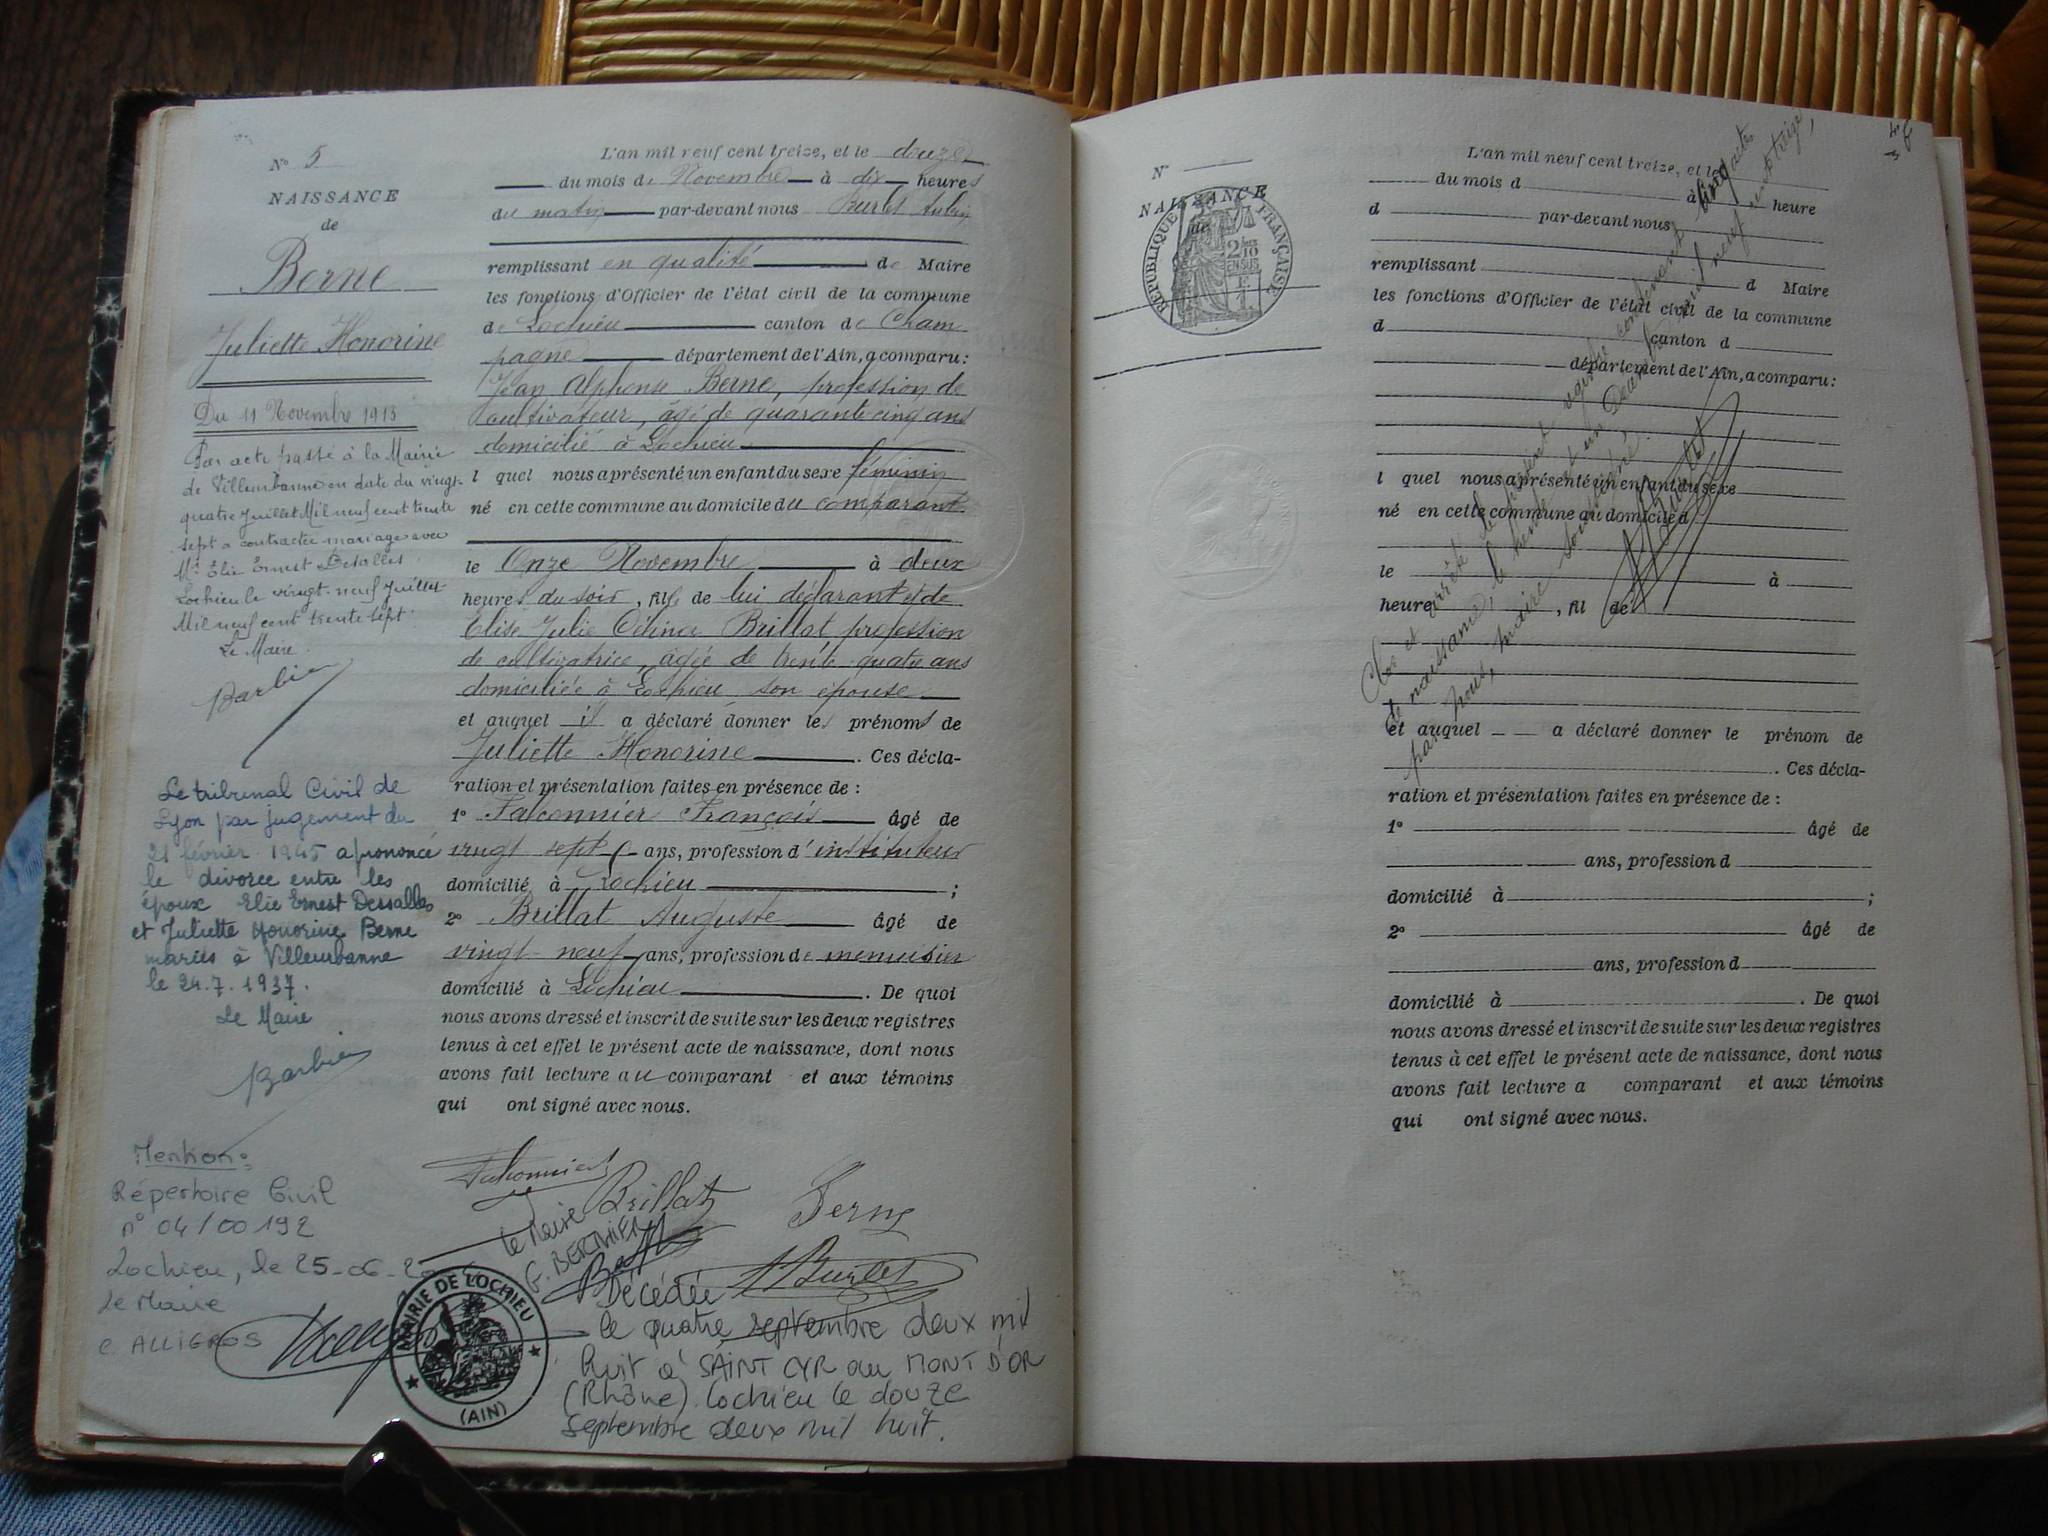 N° 5
NAISSANCE
de
Berne
Juliette Honorine
Du 11 Novembre 1913
Par acte passé à la Mairie
de Villeurbanne en date du vingt-
quatre Juillet Mil neuf cent trente
sept a contracté mariage avec
Mr Elie Ernest Desalles
Lochieu le vingt-neuf Juillet
Mil neuf cent trente sept.
Le Maire
Barbier
Le tribunal Civil de
Lyon par jugement du
21 février 1945 a prononcé
le divorce entre les
époux Elie Ernest Dessalles
et Juliette Honorine Berne
mariés à Villeurbanne
le 24.7.1937.
Le Maire
Barbier
Mention:
Répertoire Civil
n° 04/00192
Lochieu, le 25-06-20
Le Maire
C. ALLIGROS
L'an mil neuf cent treize, et le douze
du mois de Novembre à dix heures
du matin par-devant nous Burlet Aubin
remplissant en qualité de Maire
les fonctions d'Officier de l'état civil de la commune
de Lochieu canton de Cham
pagne département de l'Ain, a comparu:
Jean Alphonse Berne, profession de
cultivateur, âgé de quarante cinq ans
domicilié à Lochieu
l quel nous a présenté un enfant du sexe féminin
né en cette commune au domicile du comparant
le Onze Novembre à deux
heures du soir, fille de lui déclarant et de
Elise Julie Célina Brillat, profession
de cultivatrice, âgée de trente quatre ans
domiciliée à Lochieu son épouse
et auquel il a déclaré donner les prénoms de
Juliette Honorine . Ces décla-
ration et présentation faites en présence de :
1° Falconnier François âgé de
vingt sept ans, profession d'instituteur
domicilié à Lochieu ;
2° Brillat Auguste âgé de
vingt-neuf ans, profession de menuisier
domicilié à Lochieu . De quoi
nous avons dressé et inscrit de suite sur les deux registres
tenus à cet effet le présent acte de naissance, dont nous
avons fait lecture au comparant et aux témoins
qui ont signé avec nous.
Falconnier
Brillat
Berne
le Maire
G. BERTHIER
ABurlet
Décédée
le quatre septembre deux mil
huit à SAINT CYR au MONT D'OR
(Rhône). Lochieu le douze
septembre deux mil huit.
MAIRIE DE LOCHIEU
(AIN)
N°
NAISSANCE
de
REPUBLIQUE FRANÇAISE
2/10 EN SUS
L'an mil neuf cent treize, et le
du mois d à heure
d par-devant nous
remplissant d Maire
les fonctions d'Officier de l'état civil de la commune
d canton d
département de l'Ain, a comparu:
l quel nous a présenté un enfant du sexe
né en cette commune au domicile d
le à
heure , fil de
et auquel a déclaré donner le prénom de
. Ces décla-
ration et présentation faites en présence de :
1° âgé de
ans, profession d
domicilié à ;
2° âgé de
ans, profession d
domicilié à . De quoi
nous avons dressé et inscrit de suite sur les deux registres
tenus à cet effet le présent acte de naissance, dont nous
avons fait lecture a comparant et aux témoins
qui ont signé avec nous.
Clos et arrêté le présent registre contenant cinq actes
de naissance, le trente et un Décembre mil neuf cent treize,
par nous, maire soussigné.
ABurlet